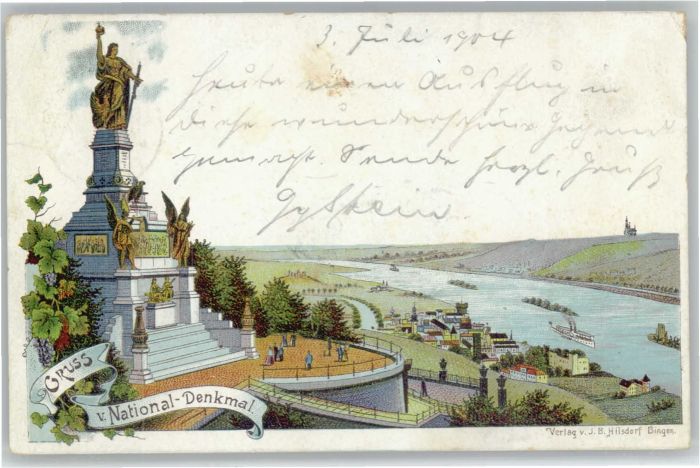 3. Juli 1904
Heute einen Ausflug in
diese wunderschöne Gegend
gemacht. Sende herzl. Gruß
Gruss
v. National-Denkmal.
Verlag v. J. B. Hilsdorf Bingen.